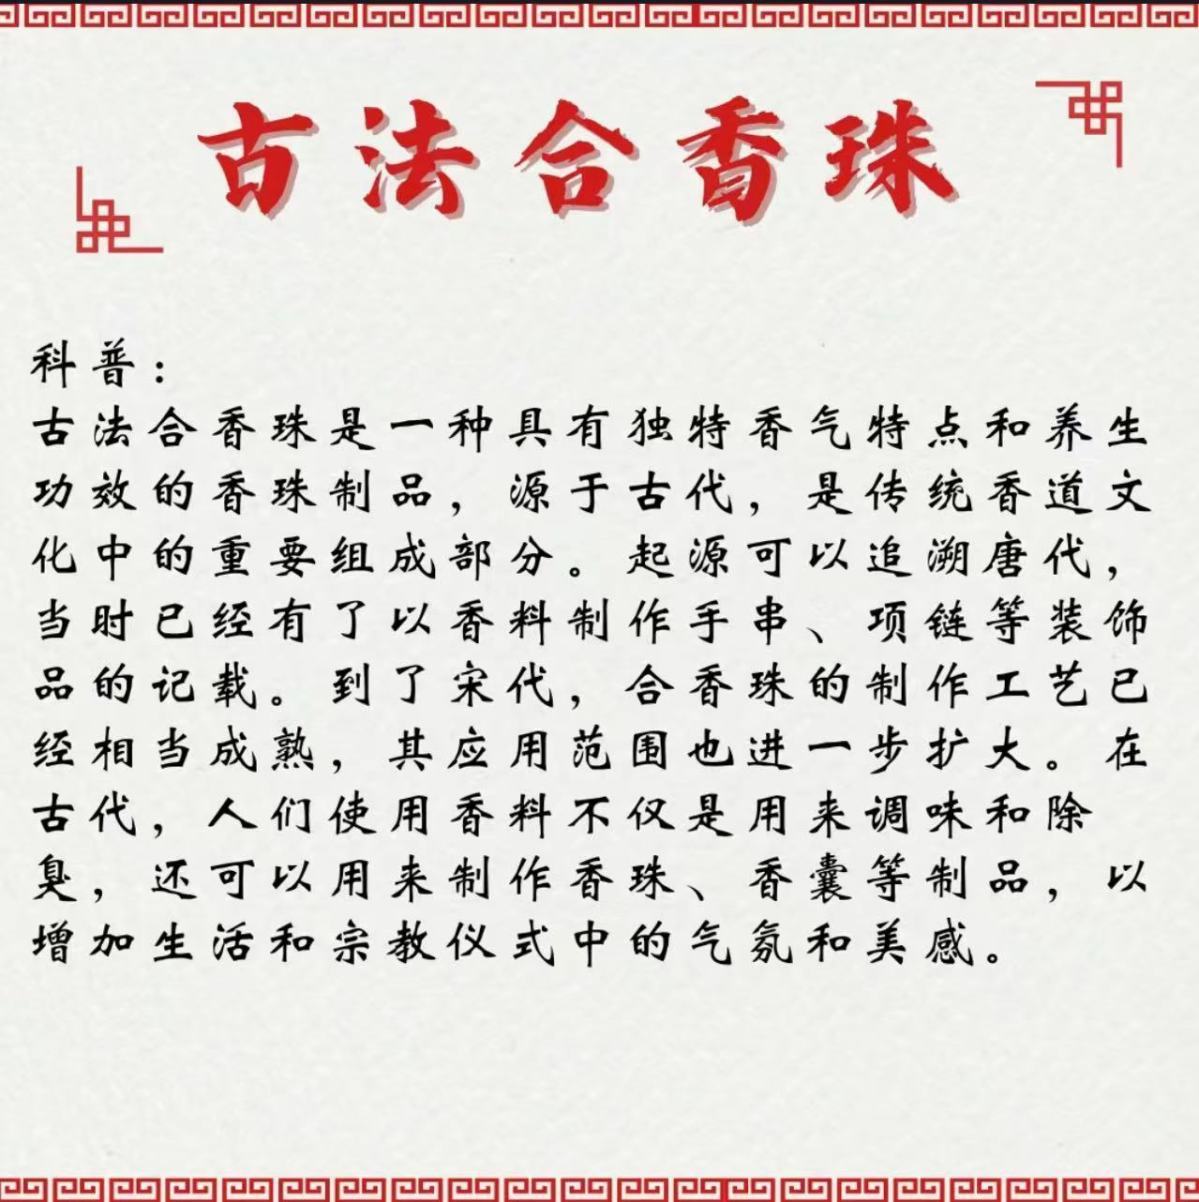 古法合香珠
科普：
古法合香珠是一种具有独特香气特点和养生
功效的香珠制品，源于古代，是传统香道文
化中的重要组成部分。起源可以追溯唐代，
当时已经有了以香料制作手串、项链等装饰
品的记载。到了宋代，合香珠的制作工艺已
经相当成熟，其应用范围也进一步扩大。在
古代，人们使用香料不仅是用来调味和除
臭，还可以用来制作香珠、香囊等制品，以
增加生活和宗教仪式中的气氛和美感。